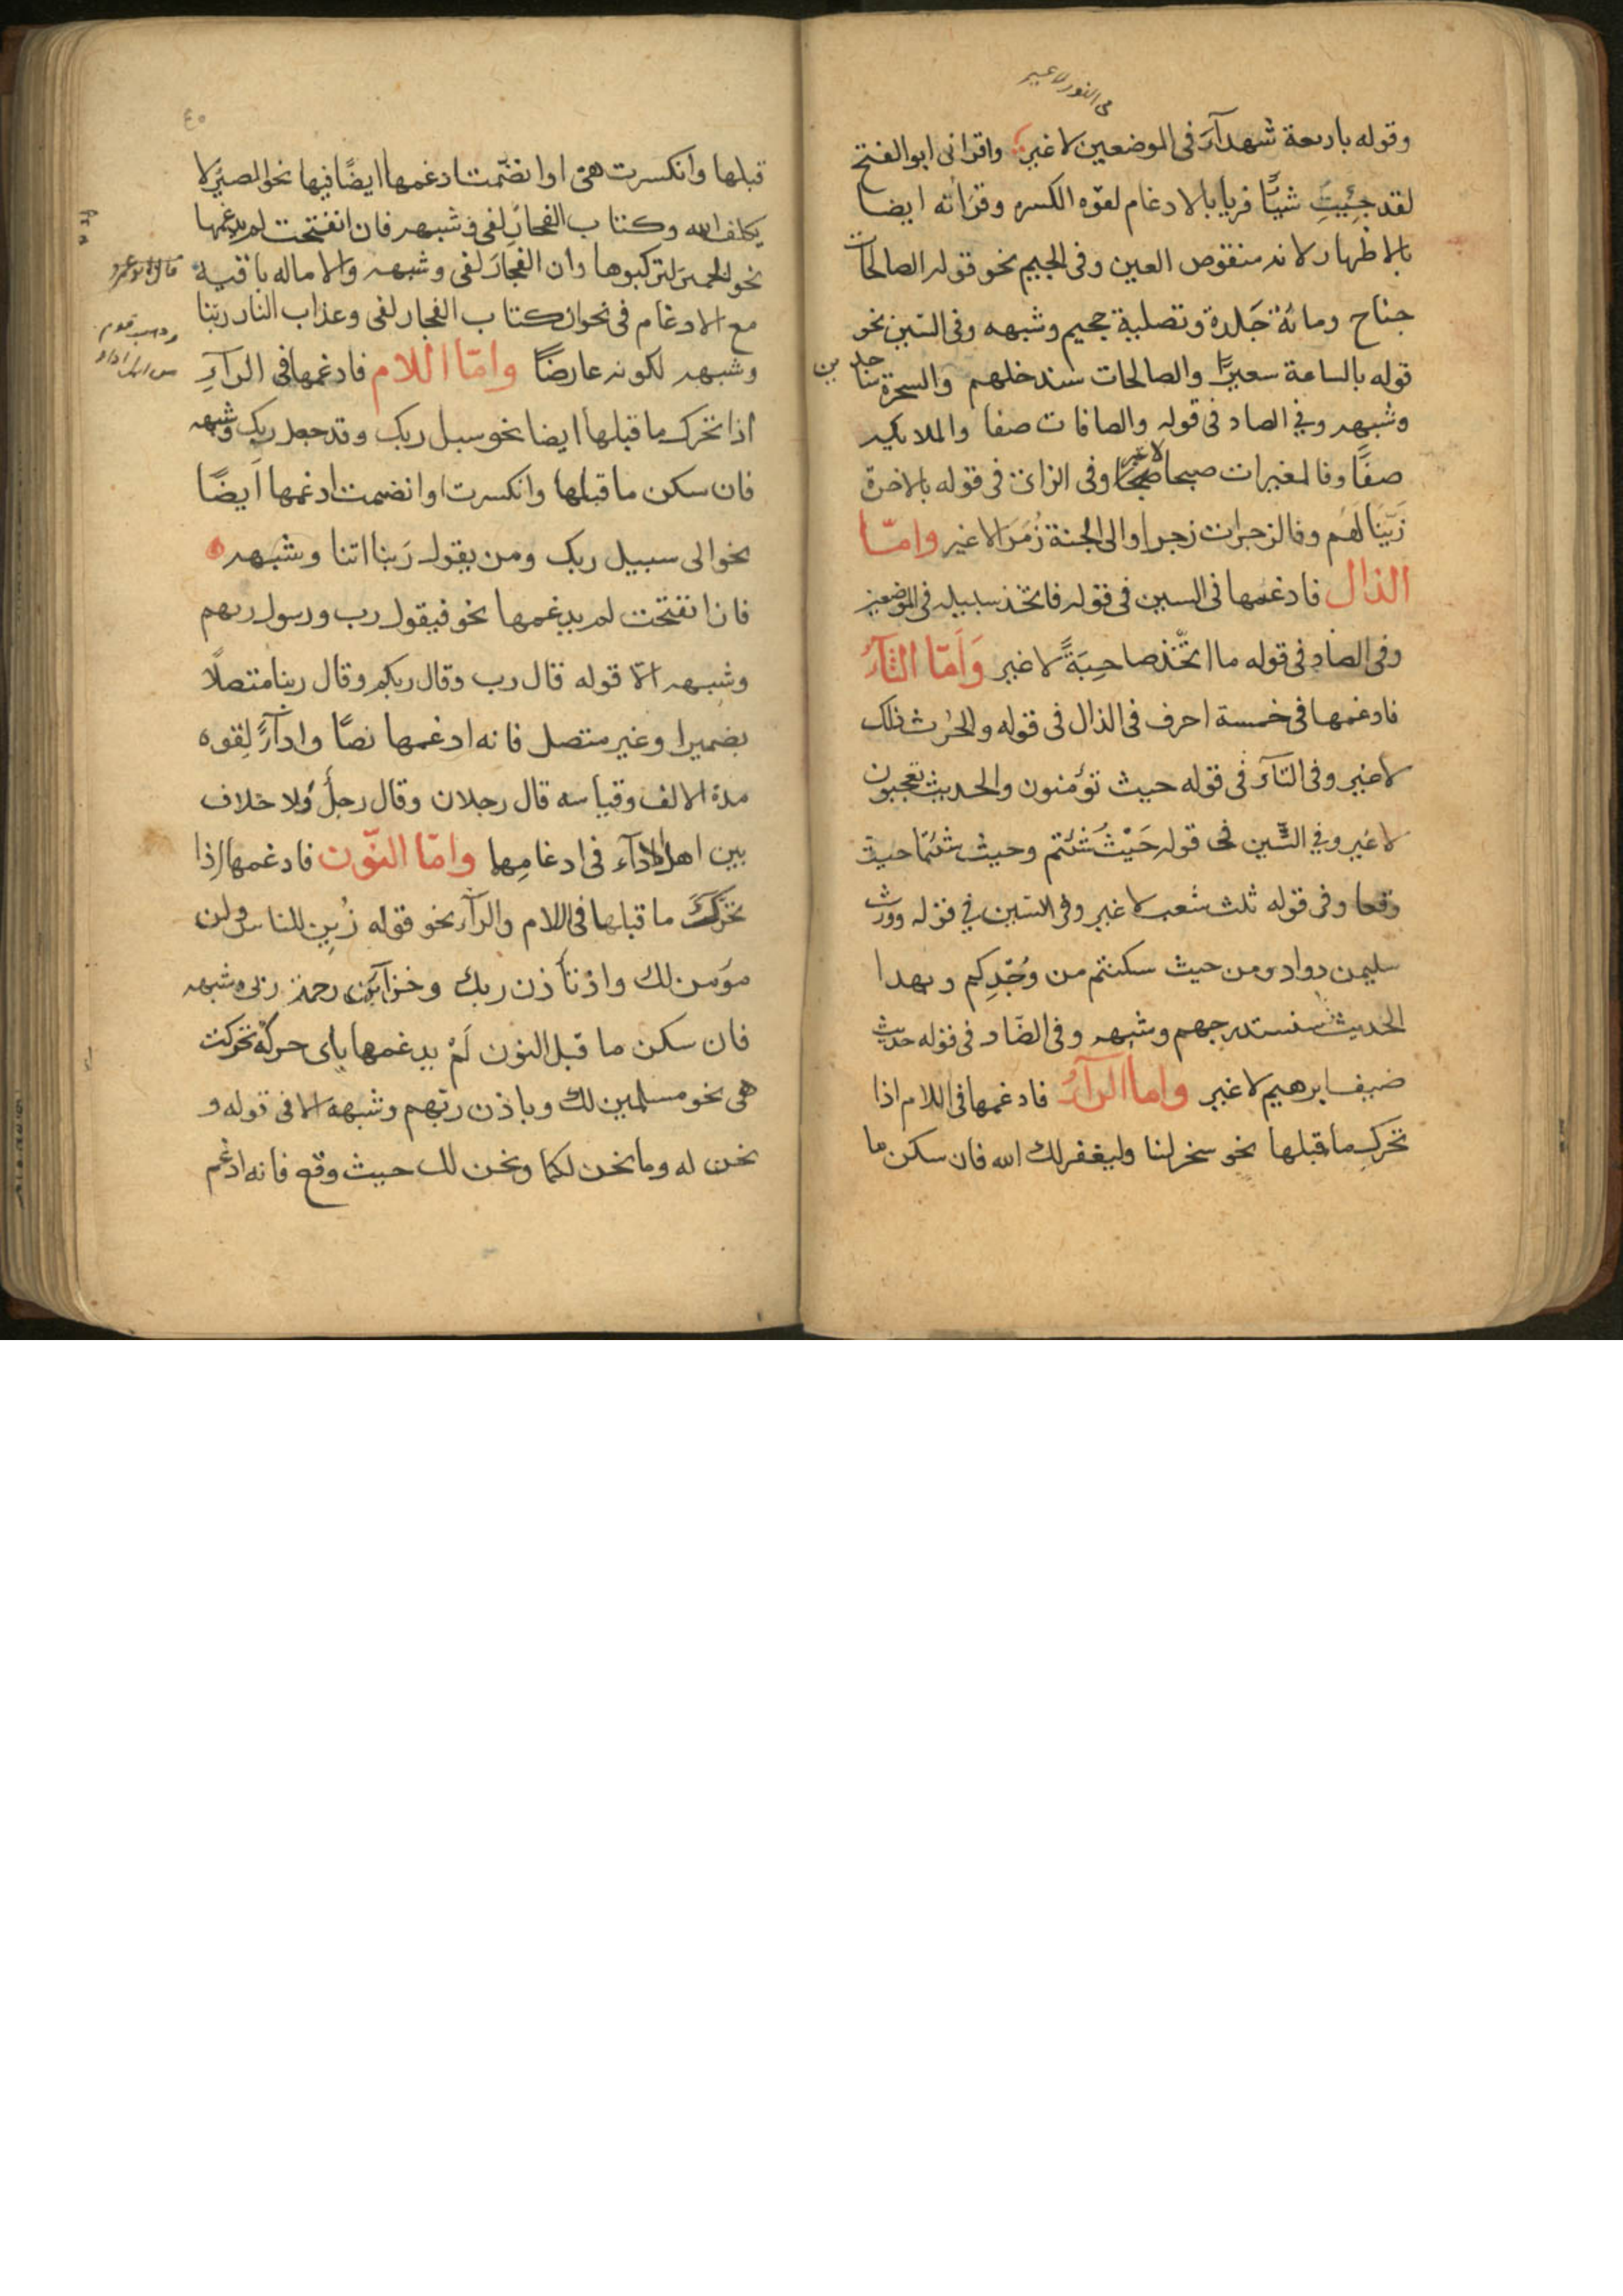 في النور لا غير
وقوله باربعة شهدآء في الموضعين لا غير واقرانى ابو الفتح
لقد جئيتِ شيئًا فريا بالادغام لقوّه الكسره وقرأته ايضا
بالاظهار لانه منقوص العين وفى الجيم نحو قوله الصالحات
جناح ومائة جَلدة وتصلية جحيم وشبهه وفى السّين نحو
قوله بالساعة سعيرًا والصالحات سندخلهم والسحرة ساجدين
وشبهه وفي الصاد فى قوله والصافات صفا والملائكه
صفًّا وفالمغيرات صبحا لا غير وفى الزاى فى قوله بالاخرة
زَيّنَا لَهُم وفالزجرات زجرا والى الجنة زُمَرَا لا غير وامّا
الذال فادغمها فى السين فى قوله فاتخذ سبيله فى الموضعين
وفى الصاد فى قوله ما اتخّذ صاحِبَةً لا غير وَاَمّا الثآءُ
فادغمها فى خمسة احرف فى الذال فى قوله والحرث ذلك
لا غير وفى التآءِ فى قوله حيث تؤمنون والحديث تعجبون
لا غير وفي الشّين فى قوله حَيْثُ شئتم وحيث شئتما حيث
وقعا وفى قوله ثلث شعب لا غير وفى السّين في قوله وورث
سليمن دواد ومن حيث سكنتم من وُجْدِكم وبهدا
الحديث سنستدرجهم وشبهه وفى الضّاد فى قوله حديث
ضيف ابرهيم لا غير واما الرآءُ فادغمها فى اللام اذا
تحرك ما قبلها نحو سخر لنا وليغفر لك الله فان سكن ما
٤٥
قبلها وانكسرت هى او انضمّت ادغمها ايضًا فيها نحو المصيرُ لا
يكلف الله وكتاب الفجارِ لفى وشبهه فان انفتحت لم يدغمها
نحو الحميرَ لتركبوها وان الفجارَ لفى وشبهه والاماله باقية
مع الادغام فى نحو ان كتاب الفجار لفى وعذاب النار ربّنا
وشبهه لكونه عارضًا وامّا اللام فادغمها فى الرآءِ
اذا تحرك ما قبلها ايضا نحو سبل ربك وقد جعل ربك وشبهه
فان سكن ما قبلها وانكسرت او انضمت ادغمها اَيضًا
نحو الى سبيل ربك ومن يقول رَبنا اتنا وشبهه
فان انفتحت لم يدغمها نحو فيقول رب ورسول ربهم
وشبهه الّا قوله قال رب وقال ربكم وقال ربنا متصلًا
بضمير او غير متصل فانه ادغمها نصًّا وادآءً لِقوه
مدة الالف وقياسه قال رجلان وقال رجلٌ وُلا خلاف
بين اهل الادآء فى ادغامِها وامّا النّون فادغمها اِذا
تحَرّكَ ما قبلها فى اللام والرآء نحو قوله زُيِن للناس ولن
نؤمن لك واذ تأذن ربك وخزآئن رحمة ربى وشبهه
فان سكن ما قبل النون لَمْ يدغمها باى حركة تحركت
هى نحو مسلمين لك وباذن ربّهم وشبهه الا فى قوله و
نحن له وما نحن لكما ونحن لك حيث وقع فانه ادغم